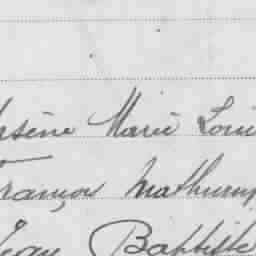 Arsène Marie Loui
François Mathurin
Jean Baptiste